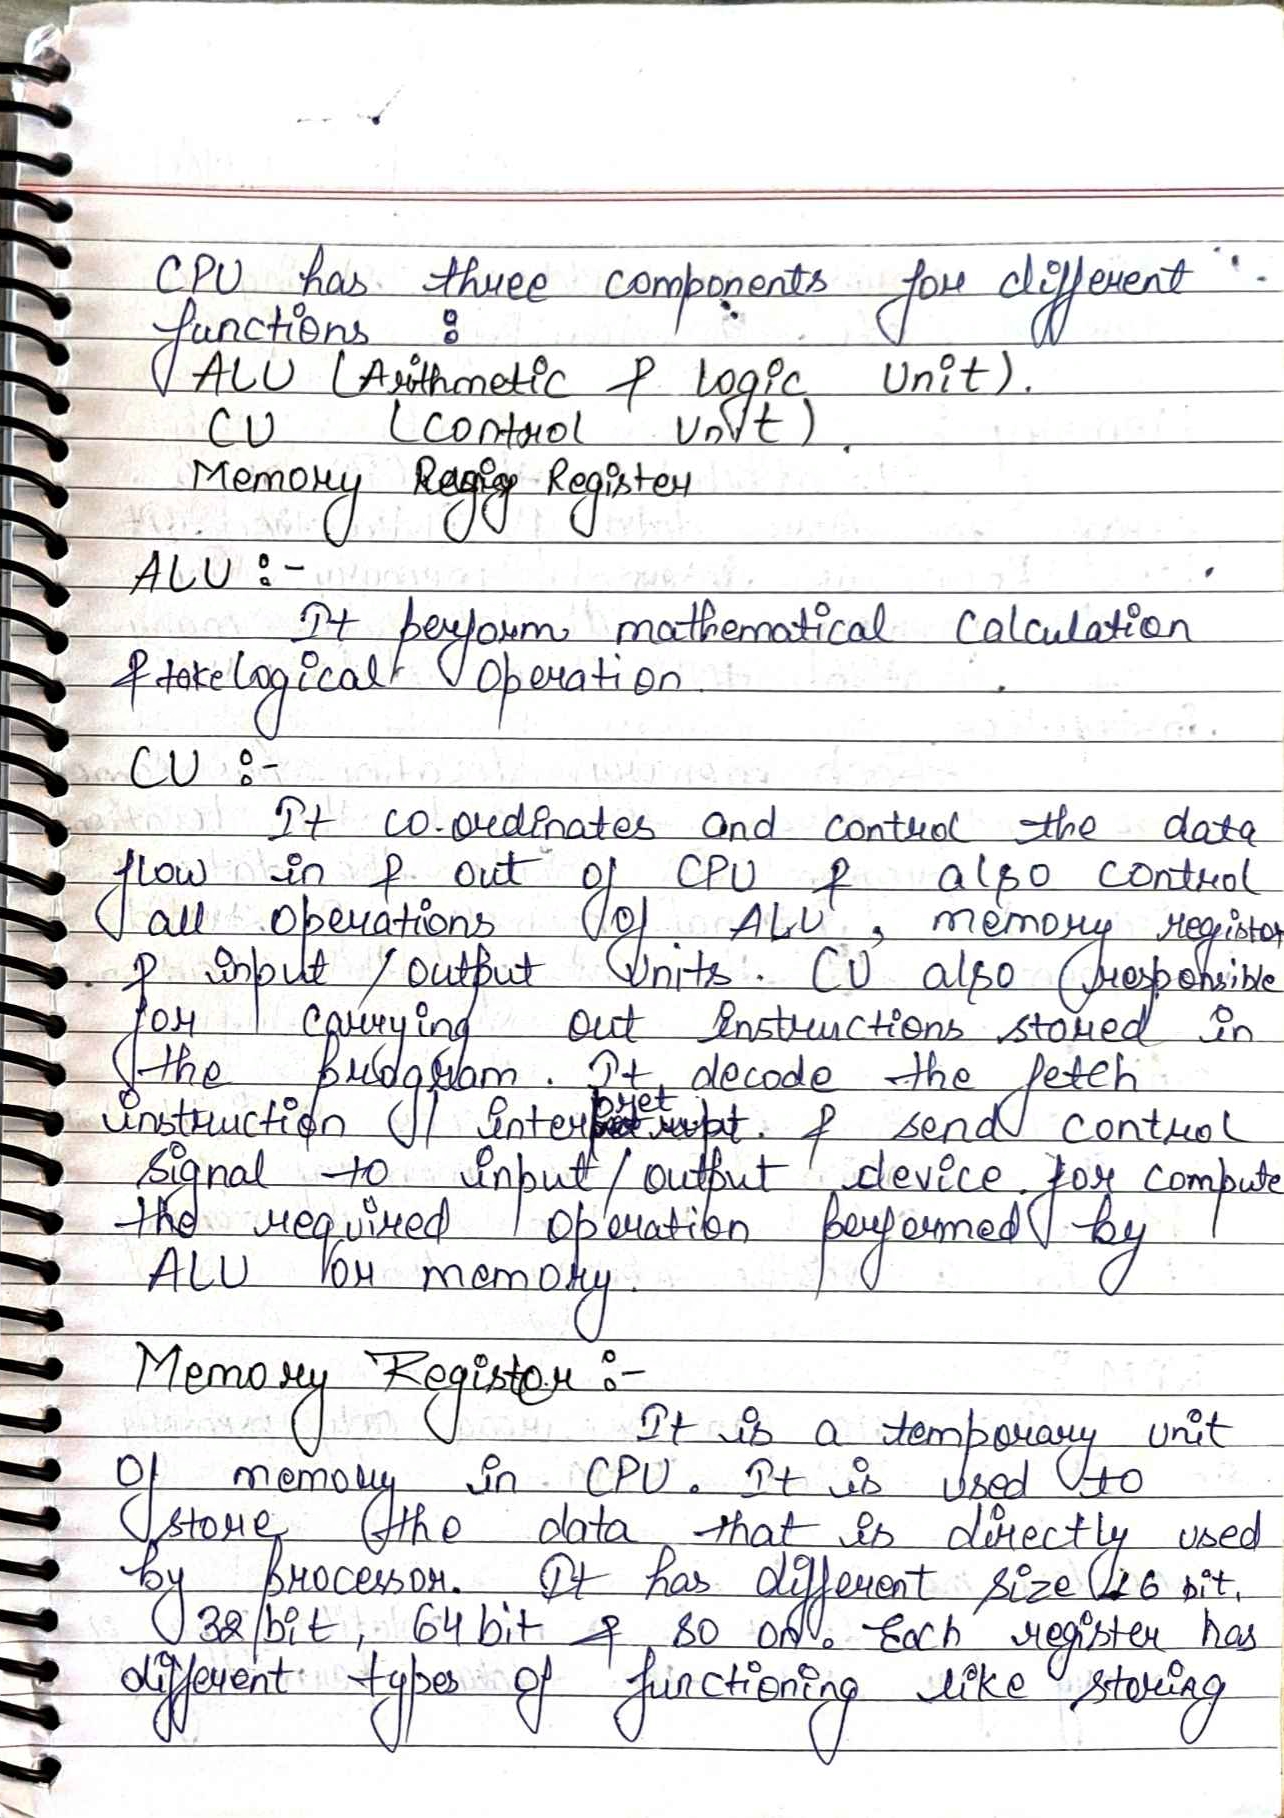 CPU has three components for different
functions :
ALU (Arithmetic & Logic Unit).
CU (Control Unit).
Memory Register
ALU :-
It perform mathematical calculation
& take logical operation.
CU :-
It co-ordinates and control the data
flow in & out of CPU & also control
all operations of ALU, memory register
& input / output units. CU also responsible
for carrying out instructions stored in
the program. It decode the fetch
instruction / interpret. & send control
signal to input / output device for compute
the required operation performed by
ALU or memory.
Memory Register :-
It is a temporary unit
of memory in CPU. It is used to
store the data that is directly used
by processor. It has different size 16 bit,
32 bit, 64 bit & so on. Each register has
different types of functioning like storing